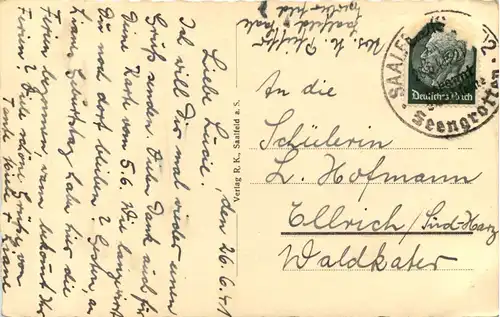 Liebe Lucie! den 26.6.41
Ich will Dir mal wieder einen
Gruß senden. Vielen Dank auch für
Deine Karte vom 5.6. Wie lange
Du noch dort bleiben? Gestern an
Lianes Geburtstag haben hier die
Ferien begonnen wann bekommt Ihr
Ferien? Viele schöne Grüße von
Tante + Liane
Saalfeld Saale
Verlag R. K., Saalfeld a. S.
SAALFELD
Feengrotten
Deutsches Reich
An die
Schülerin
L. Hofmann
Ellrich/Süd-Harz
Waldkater